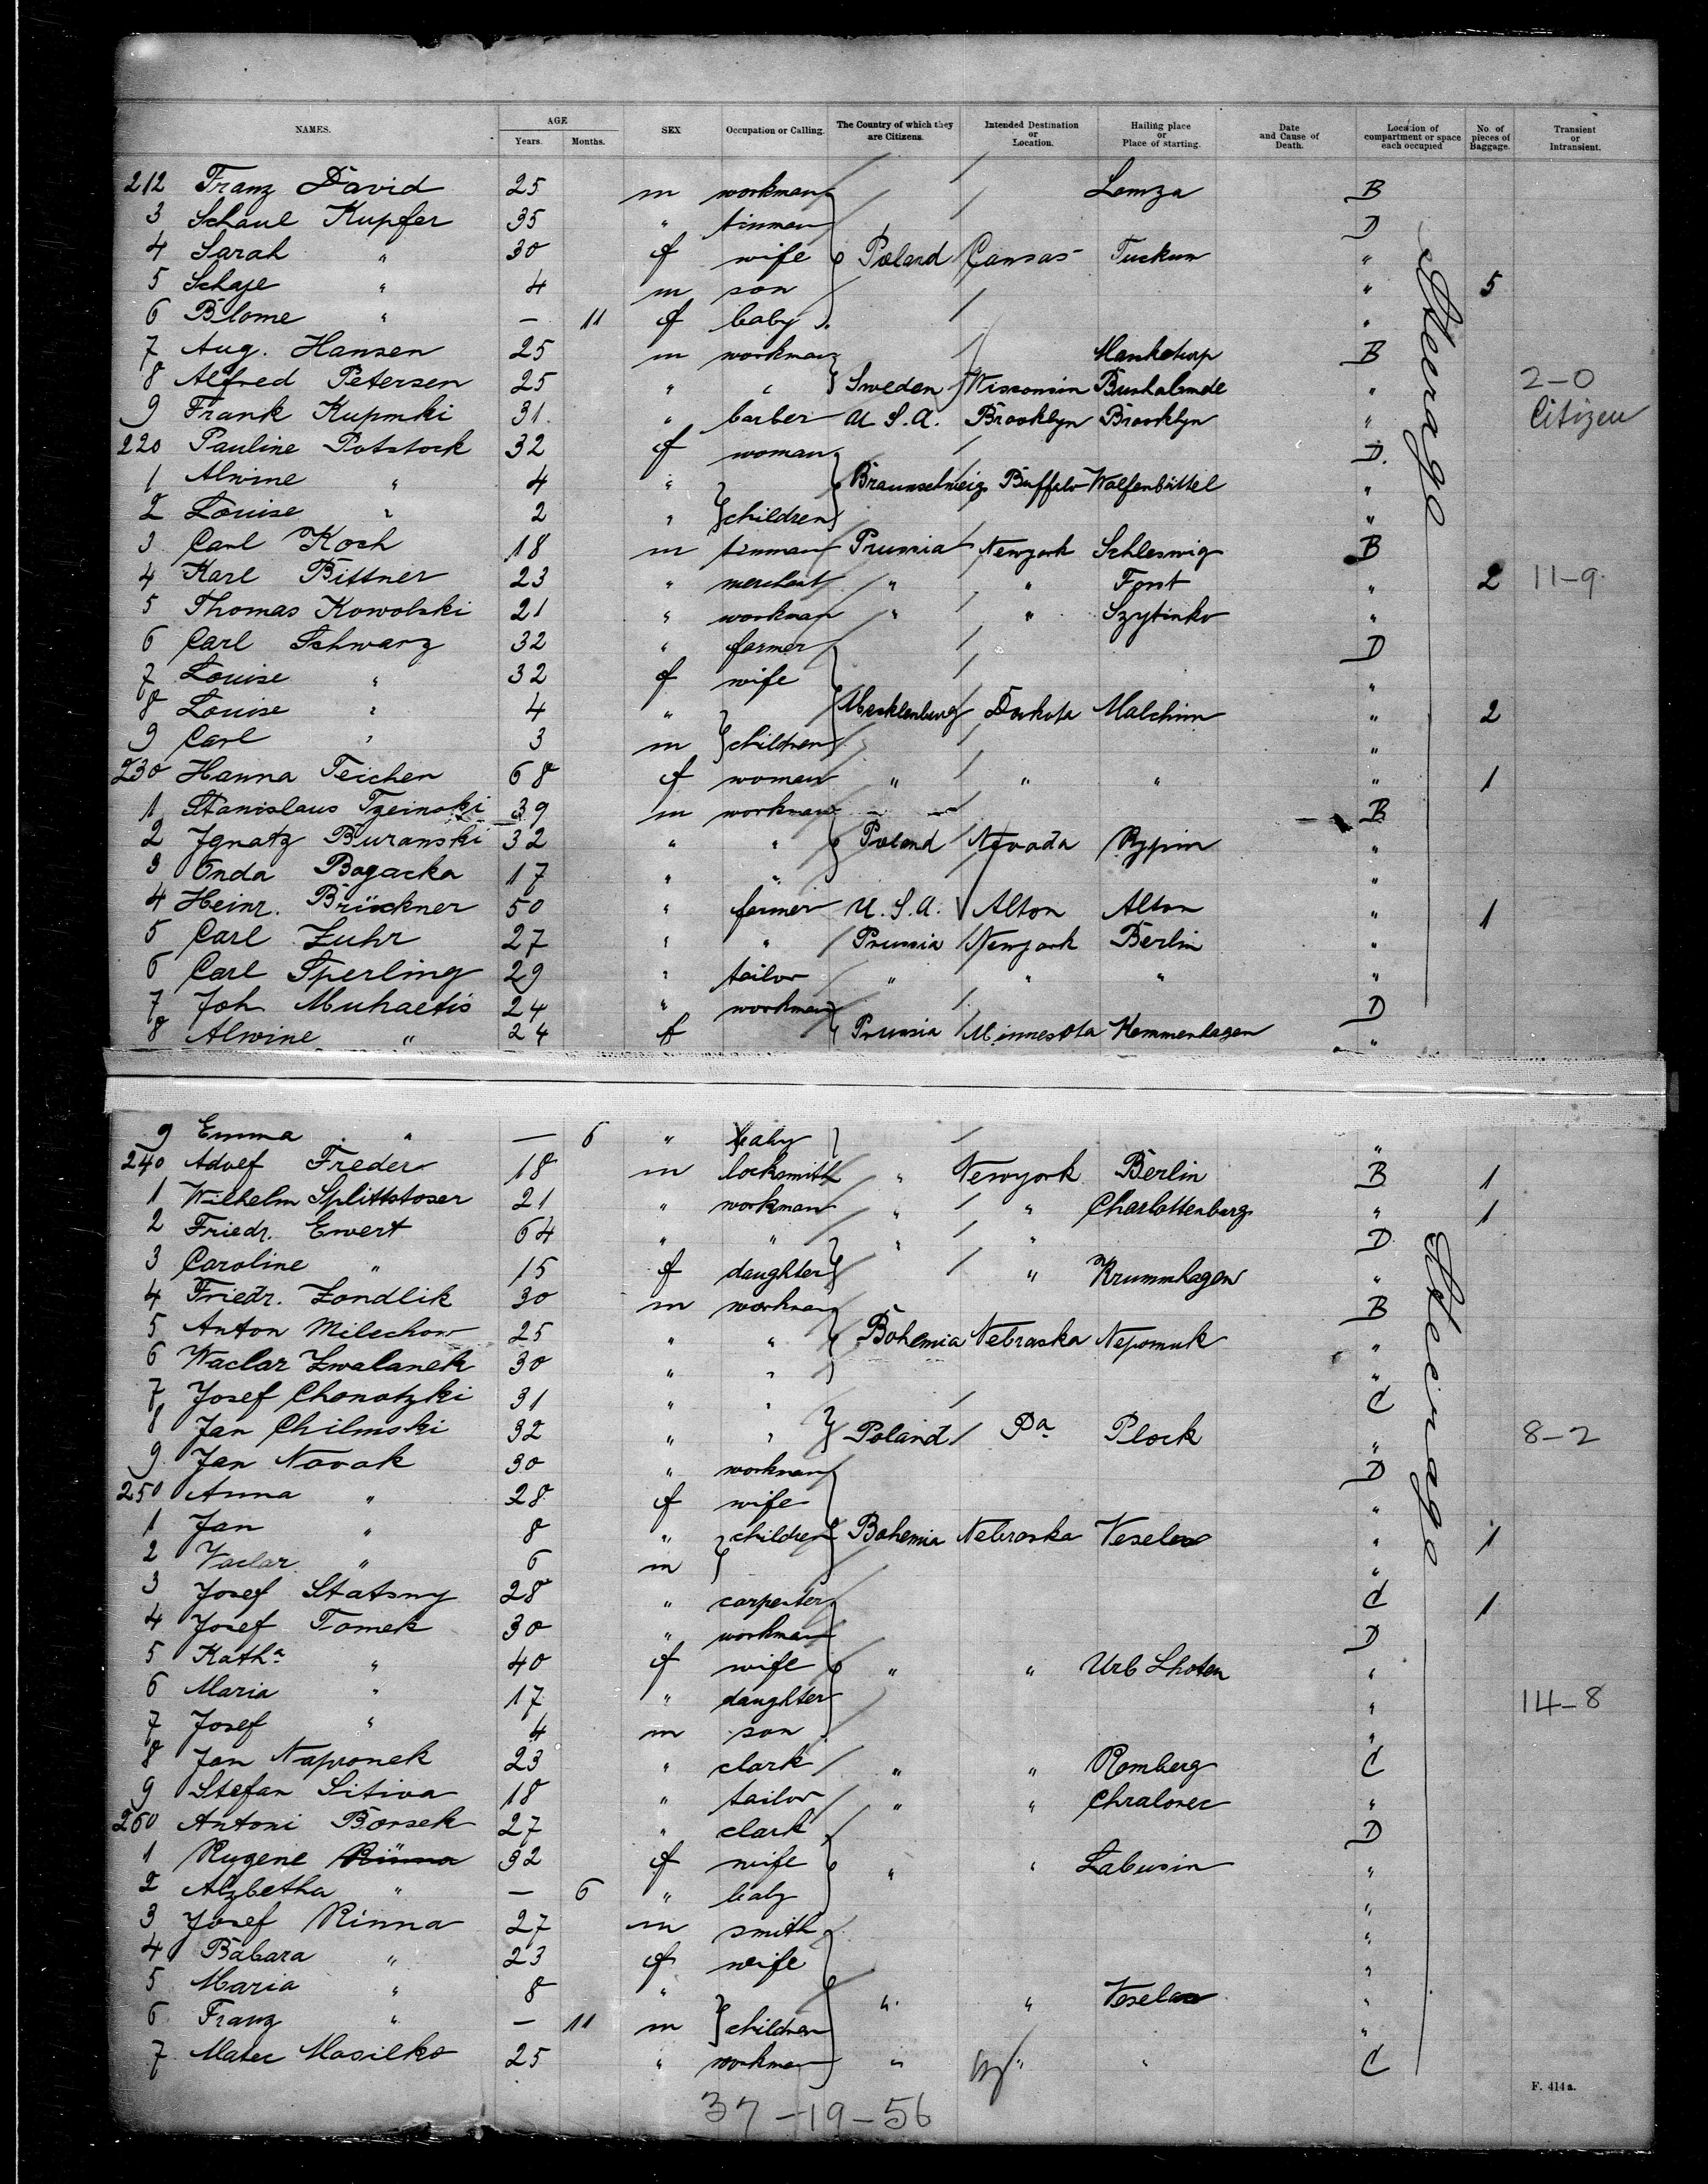 NAMES. AGE Years. Months. SEX Occupation or Calling. The Country of which they are Citizens. Intended Destination or Location. Hailing place or Place of starting. Date and Cause of Death. Location of compartment or space each occupied No. of pieces of Baggage. Transient or Intransient.
212 Franz David 25 m workman Lomza B
3 Schaul Kupfer 35 " tinman D
4 Sarah " 30 f wife Poland Cansas Tuckum "
5 Schaje " 4 m son " 5
6 Blome " — 11 f baby "
7 Aug. Hansen 25 m workman B
8 Alfred Petersen 25 " " Sweden Wisconsin " 2-0
9 Frank Kupmki 31 " barber U.S.A. Brooklyn Brooklyn " Citizen
220 Pauline Potstock 32 f woman D.
1 Alwine " 4 " Braunschweig Buffalo Wolfenbüttel "
2 Louise " 2 " children "
3 Carl Koch 18 m tinman Prussia Newyork Schleswig B
4 Karl Bittner 23 " merchant " " Forst " 2 11-9
5 Thomas Kowolski 21 " workman " " Szytinko "
6 Carl Schwarz 32 " farmer D
7 Louise " 32 f wife "
8 Louise " 4 " Mecklenburg Dakota Malchim " 2
9 Carl " 3 m children "
230 Hanna Teichen 68 f woman " " " " 1
1 Stanislaus Tzeinski 39 m workman B
2 Ignatz Buranski 32 " " Poland Nevada Rypin "
3 Onda Bogacka 17 " " "
4 Heinr. Brückner 50 " farmer U.S.A. Alton Alton " 1
5 Carl Zuhr 27 " " Prussia Newyork Berlin "
6 Carl Sperling 29 " tailor " " " "
7 Joh Muhaetis 24 " workman D
8 Alwine " 24 f Prussia Minnesota Kemmenhagen "
9 Emma " — 6 " baby "
240 Adolf Freder 18 m locksmith " Newyork Berlin B 1
1 Wilhelm Splittstoser 21 " workman " " Charlottenburg " 1
2 Friedr. Ewert 64 " " " " D
3 Caroline " 15 f daughter " Krummhagen "
4 Friedr. Zondlik 30 m workman B
5 Anton Milechow 25 " " Bohemia Nebraska Nepomuk "
6 Waclar Zwalanek 30 " " "
7 Josef Chonotzki 31 " " C
8 Jan Chilmski 32 " " Poland Pa Plock " 8-2
9 Jan Novak 30 " workman D
250 Anna " 28 f wife "
1 Jan " 8 " children Bohemia Nebraska " 1
2 Vaclar " 6 m "
3 Josef Statsny 28 " carpenter C 1
4 Josef Tomek 30 " workman D
5 Katha " 40 f wife " " Urb Lhoten "
6 Maria " 17 " daughter " 14-8
7 Josef " 4 m son "
8 Jan Napronek 23 " clark " " Romberg C
9 Stefan Sitiva 18 " tailor " " Chralovec "
260 Antoni Borsek 27 " clark D
1 Rugene Rinna 32 f wife " " Labusin "
2 Alzbetha " — 6 " baby "
3 Josef Rinna 27 m smith "
4 Babara " 23 f wife "
5 Maria " 8 " " " "
6 Franz " — 11 m children "
7 Matec Masilko 25 " workman " " " C
Steerage
Steerage
37-19-56
F. 414a.